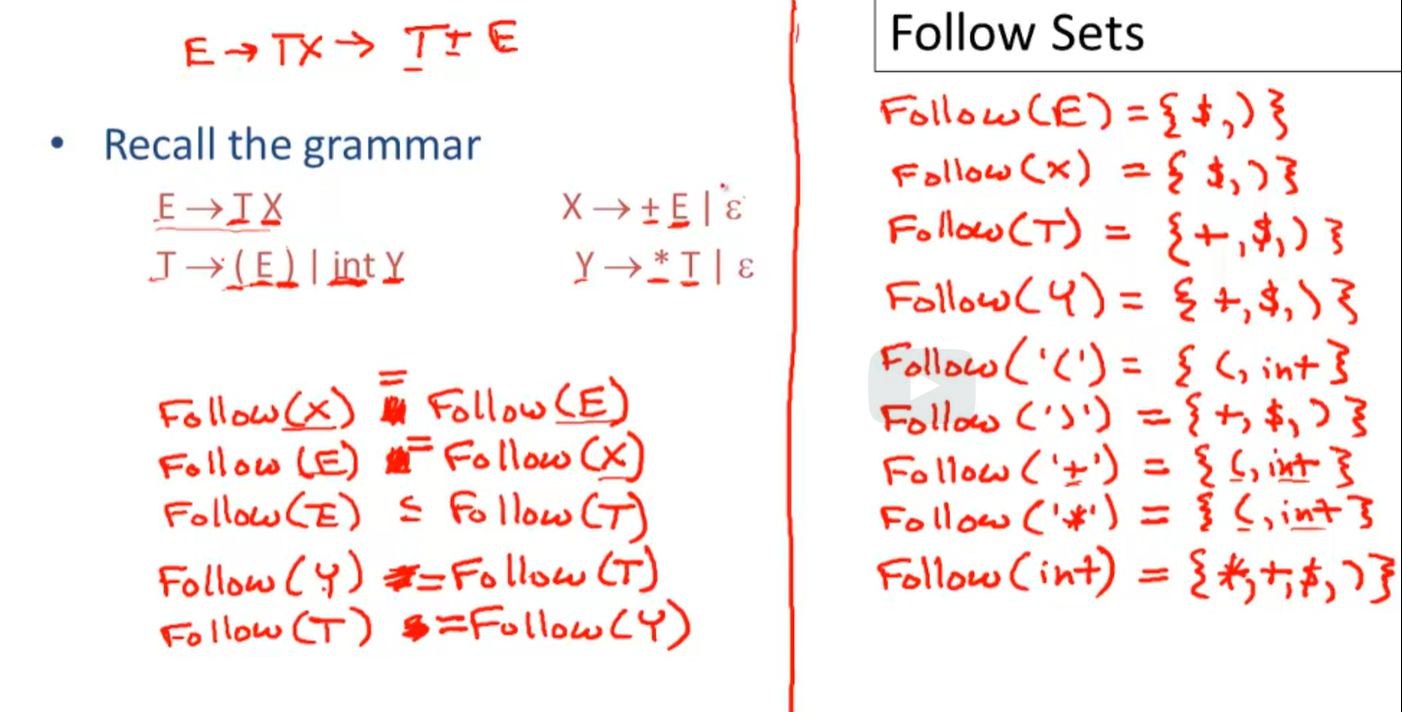 E → TX → T + E
• Recall the grammar
E → T X    X → + E | ε
T → ( E ) | int Y    Y → * T | ε
Follow(X) = Follow(E)
Follow(E) = Follow(X)
Follow(E) ⊆ Follow(T)
Follow(Y) = Follow(T)
Follow(T) = Follow(Y)
Follow Sets
Follow(E) = { $, ) }
Follow(X) = { $, ) }
Follow(T) = { +, $, ) }
Follow(Y) = { +, $, ) }
Follow('(') = { (, int }
Follow(')') = { +, $, ) }
Follow('+') = { (, int }
Follow('*') = { (, int }
Follow(int) = { *, +, $, ) }